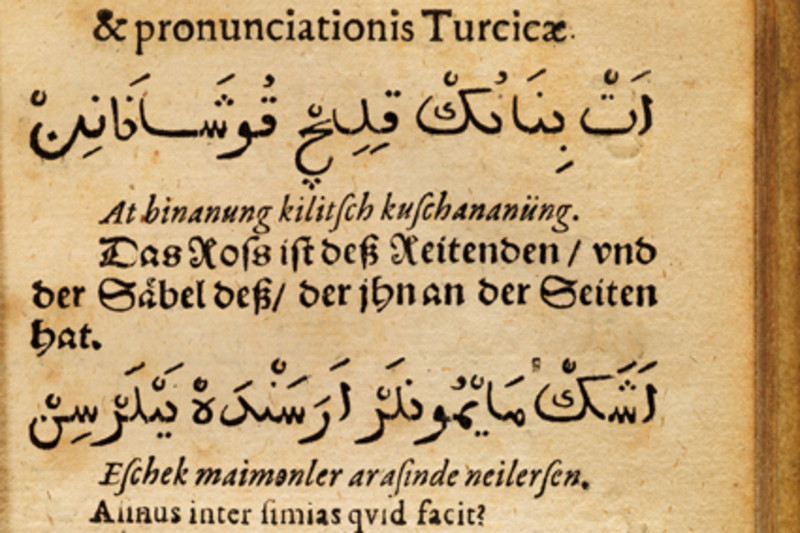 & pronunciationis Turcicæ.
اَتْ بِنَانُكْ قِلِچْ قُوشَانَانِنْ
At binanung kilitſch kuſchananüng.
Das Roſs iſt deß Reitenden / vnd
der Saͤbel deß/ der jhn an der Seiten
hat.
اَشَكْ مَايْمُونلَرْ اَرَسَنْدَهْ نَيْلَرْسِنْ
Eſchek maimonler araſinde neilerſen.
Aſinus inter ſimias qvid facit?